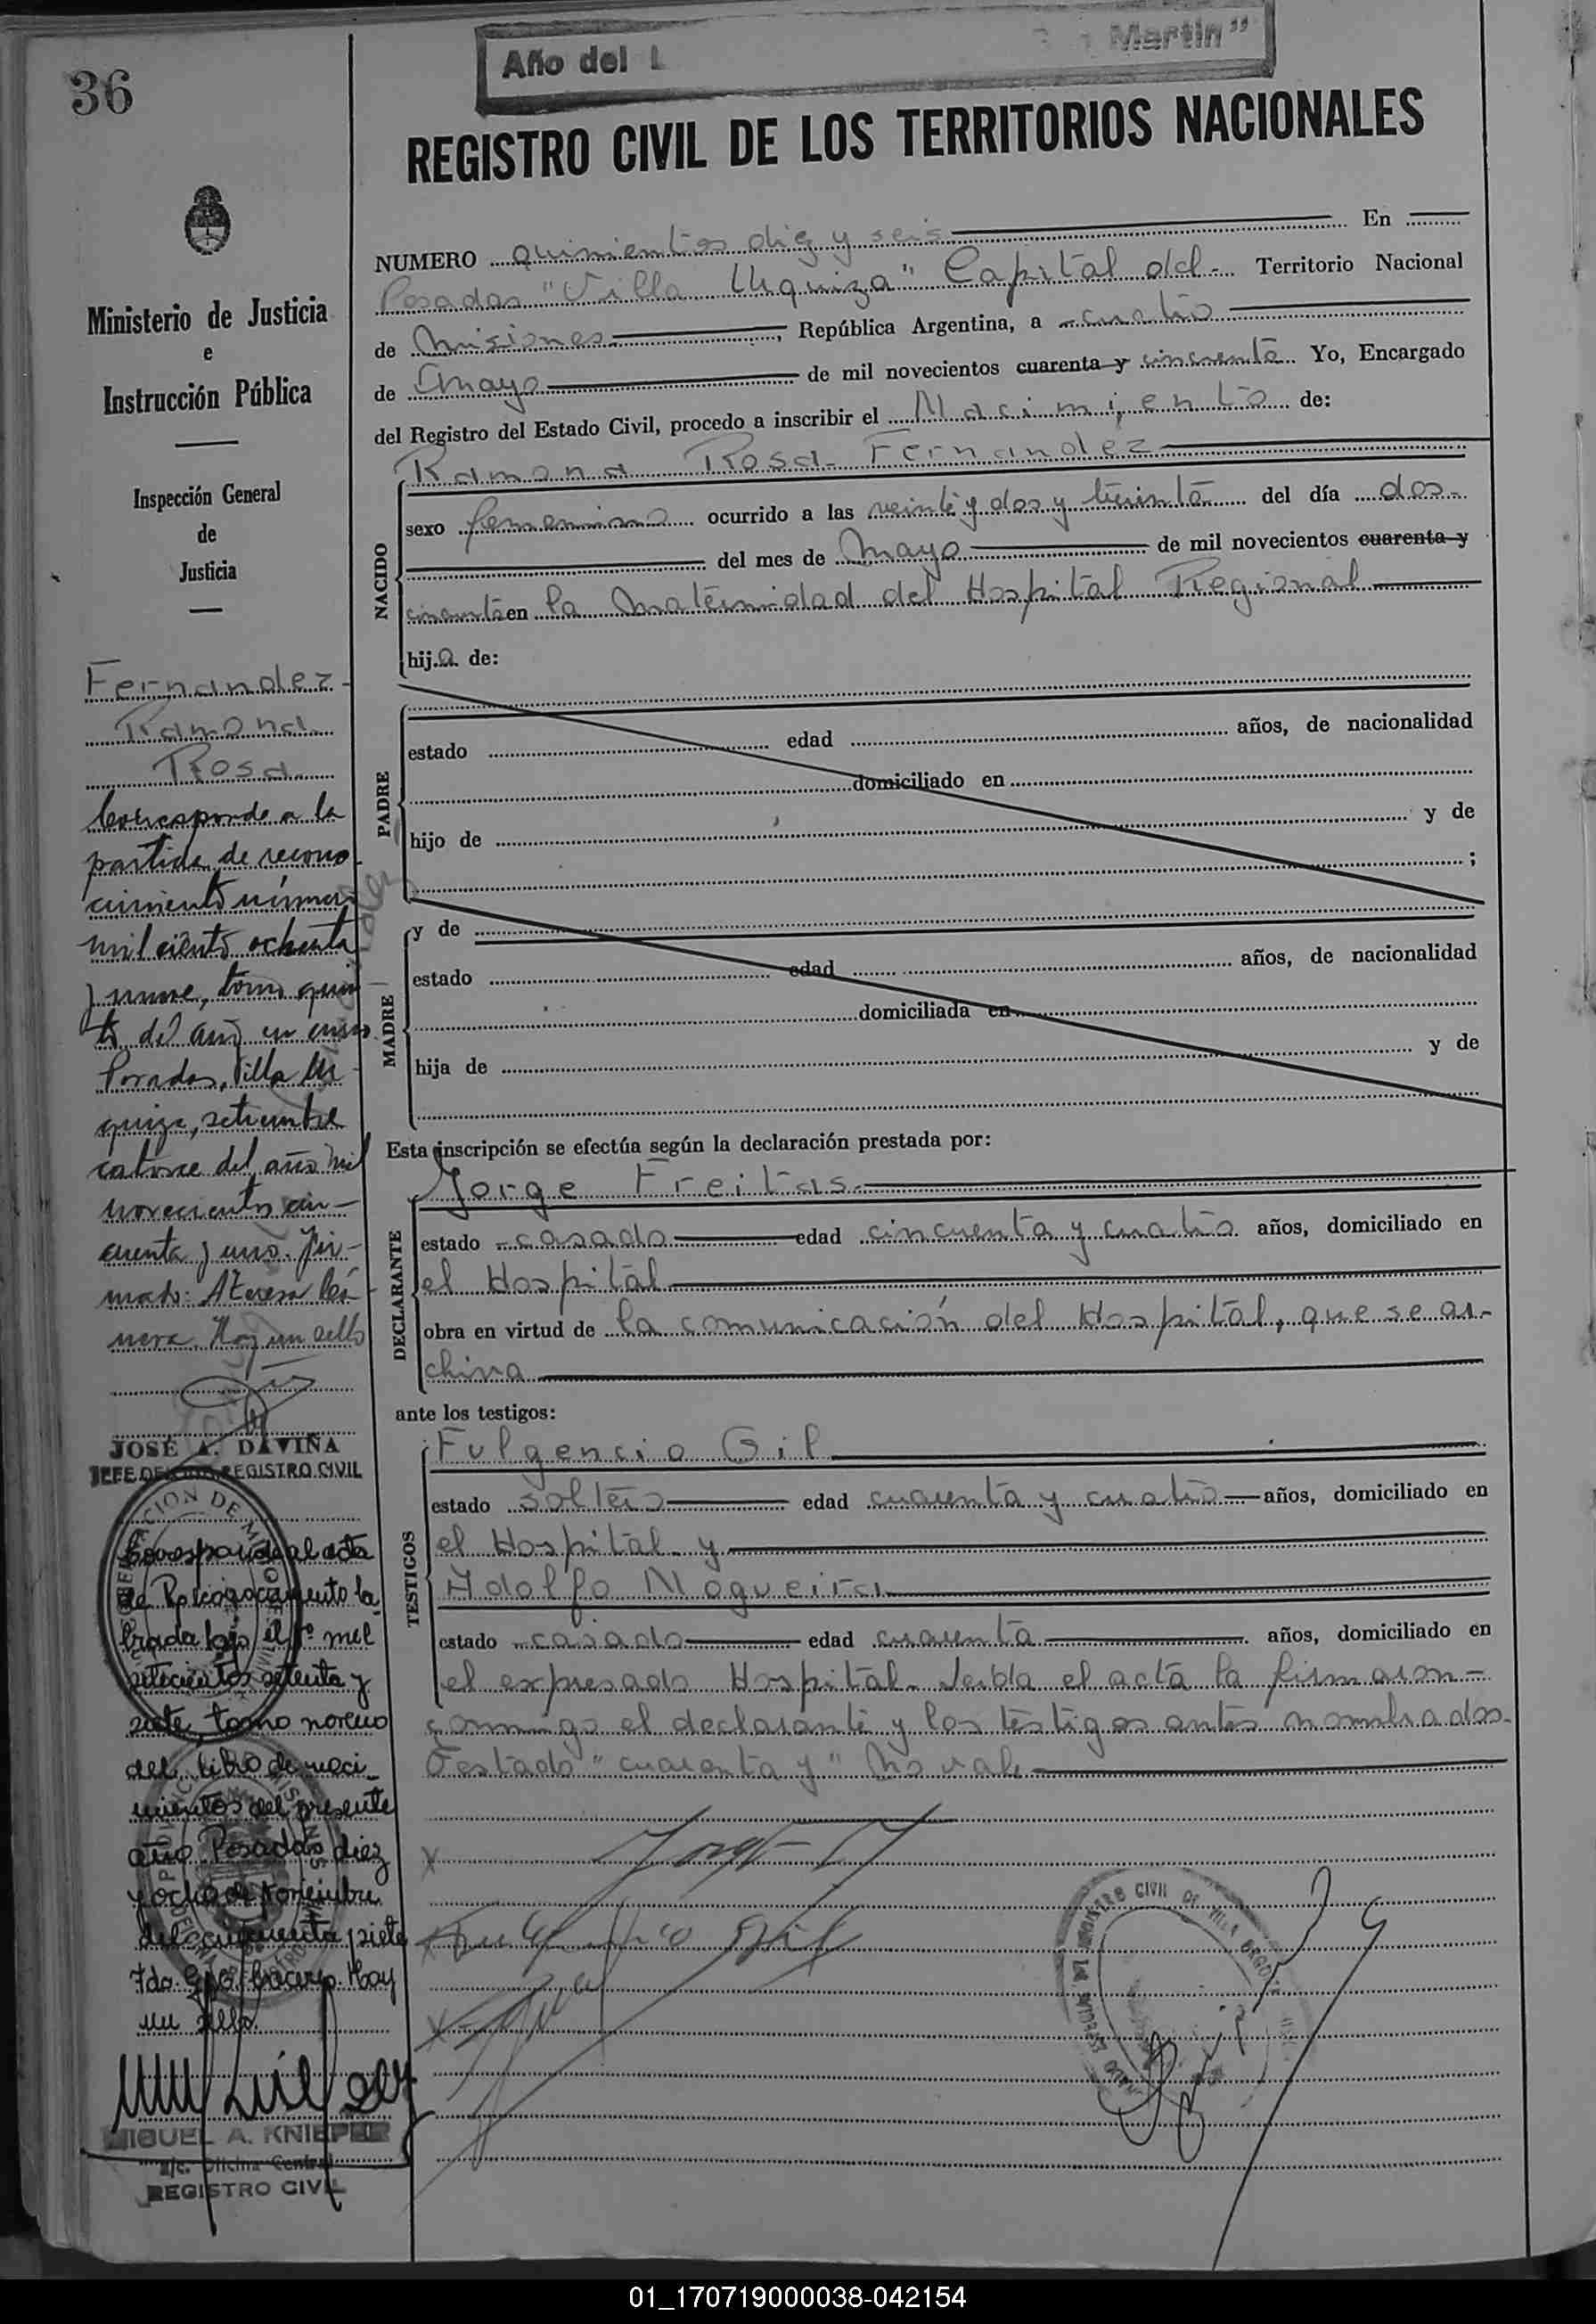 36
Año del L Martín"
REGISTRO CIVIL DE LOS TERRITORIOS NACIONALES
NUMERO quinientos diez y seis En
Posadas "Villa Urquiza" Capital del Territorio Nacional
de Misiones, República Argentina, a cuatro
de Mayo de mil novecientos cuarenta y cincuenta Yo, Encargado
del Registro del Estado Civil, procedo a inscribir el Nacimiento de:
NACIDO
Ramona Rosa Fernandez
sexo femenino ocurrido a las veinte y dos y treinta del día dos
del mes de Mayo de mil novecientos cuarenta y
cincuenta en la Maternidad del Hospital Regional
hija de:
PADRE
estado edad años, de nacionalidad
domiciliado en
hijo de y de
;
MADRE
y de
estado edad años, de nacionalidad
domiciliada en
hija de y de
Esta inscripción se efectúa según la declaración prestada por:
DECLARANTE
Jorge Freitas
estado casado edad cincuenta y cuatro años, domiciliado en
el Hospital
obra en virtud de la comunicación del Hospital, que se ar-
chiva
ante los testigos:
TESTIGOS
Fulgencio Gil
estado soltero edad cuarenta y cuatro años, domiciliado en
el Hospital y
Adolfo Nogueira
estado casado edad cuarenta años, domiciliado en
el expresado Hospital. Leida el acta la firmaron
conmigo el declarante y los testigos antes nombrados.
Testado "cuarenta y" No vale
Ministerio de Justicia
e
Instrucción Pública
Inspección General
de
Justicia
Fernandez
Ramona
Rosa
Corresponde a la
partida de recono
cimiento número
mil ciento ochenta
y nueve, tomo quin
to del año en curso
Posadas, Villa Ur
quiza, setiembre
catorce del año mil
novecientos cin-
cuenta y uno. Fir-
mado: A Teresa
Hay un sello
JOSÉ A. DAVIÑA
JEFE DEL REGISTRO CIVIL
Corresponde al acta
de Reconocimiento la
brada bajo el Nº mil
setecientos setenta y
siete, tomo noveno
del libro de naci
mientos del presente
año Posadas diez
y ocho de Noviembre
del cincuenta y siete
Fdo. Hay
un sello.
MIGUEL A. KNIEPER
a/c. Oficina Central
REGISTRO CIVIL
01_170719000038-042154